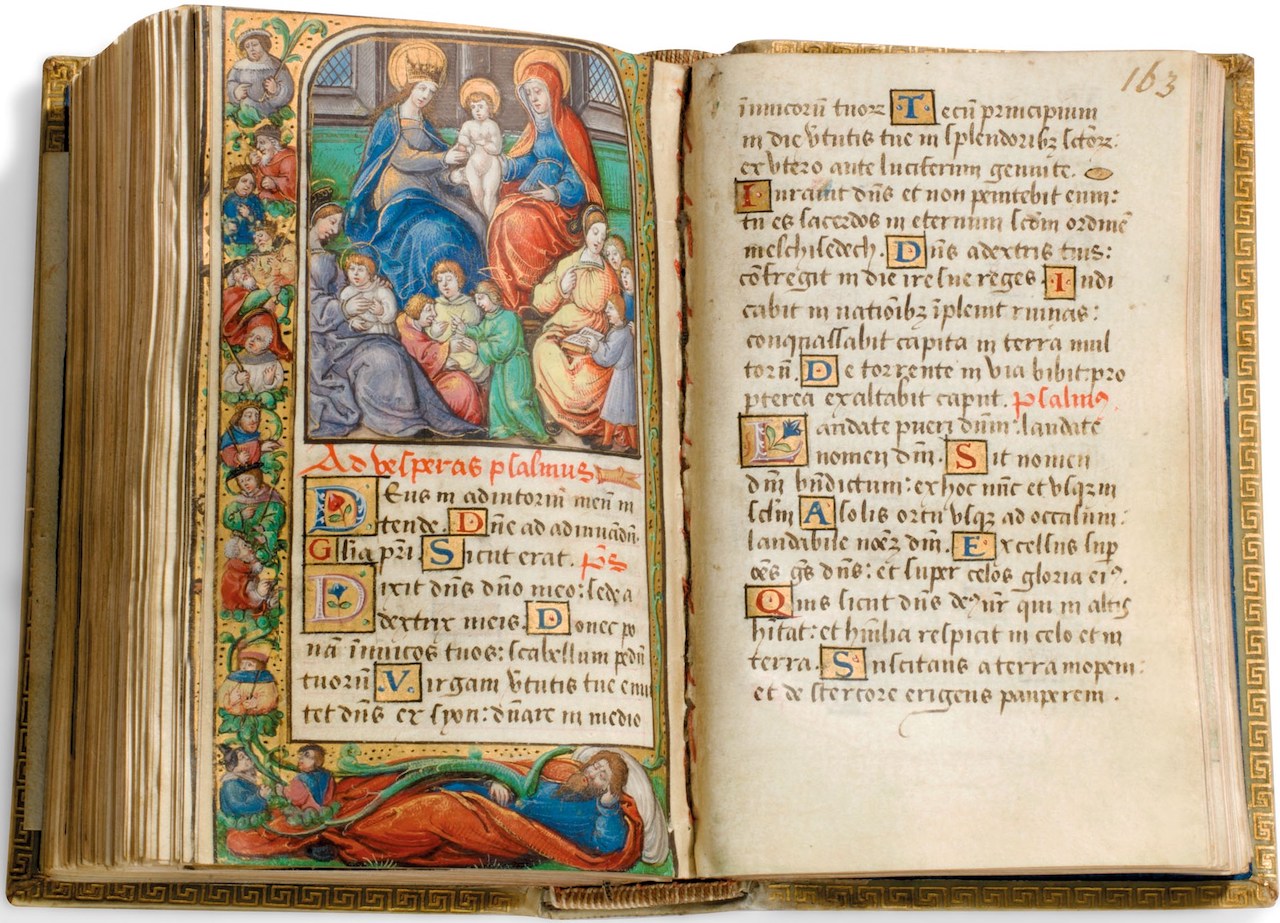 Ad vesperas psalmus
Deus in adiutoriū meū in
tende. Dn̄e ad adiuuādū.
Gl̄ia pr̄i Sicut erat. ps̄
Dixit dn̄s dn̄o meo: sede a
dextrix meis. Donec po
nā īimicos tuos: scabellum pedū
tuorū Virgam v̄tutis tue emi
tet dn̄s ex syon: dn̄are in medio
163
īnnicorū tuoꝝ Tecū principium
in die v̄tutis tue in splendoribꝫ sctōꝝ.
ex vtero ante luciferum genui te.
Iurauit dn̄s et non penitebit eum:
tu es sacerdos in eternum scdm̄ ordinē
melchisedech. Dn̄s a dextris tuis:
cōfregit in die ire sue reges. Iudi
cabit in nationibꝫ īpleuit ruinas:
conquassabit capita in terra mul
torū. De torrente in via bibit: pro
pterea exaltabit caput. psalmꝰ.
Laudate pueri dn̄m: laudate
nomen dn̄i. Sit nomen
dn̄i bn̄dictum: ex hoc nūc et vsqꝫ in
scl̄m A solis ortu vsqꝫ ad occasum:
laudabile noēꝫ dn̄i. Excelsus sup
oēs gēs dn̄s: et super celos gloria eiꝰ.
Quis sicut dn̄s deꝰ nr̄ qui in altis
hitat: et hūilia respicit in celo et in
terra. Suscitans a terra inopem:
et de stercore erigens pauperem.